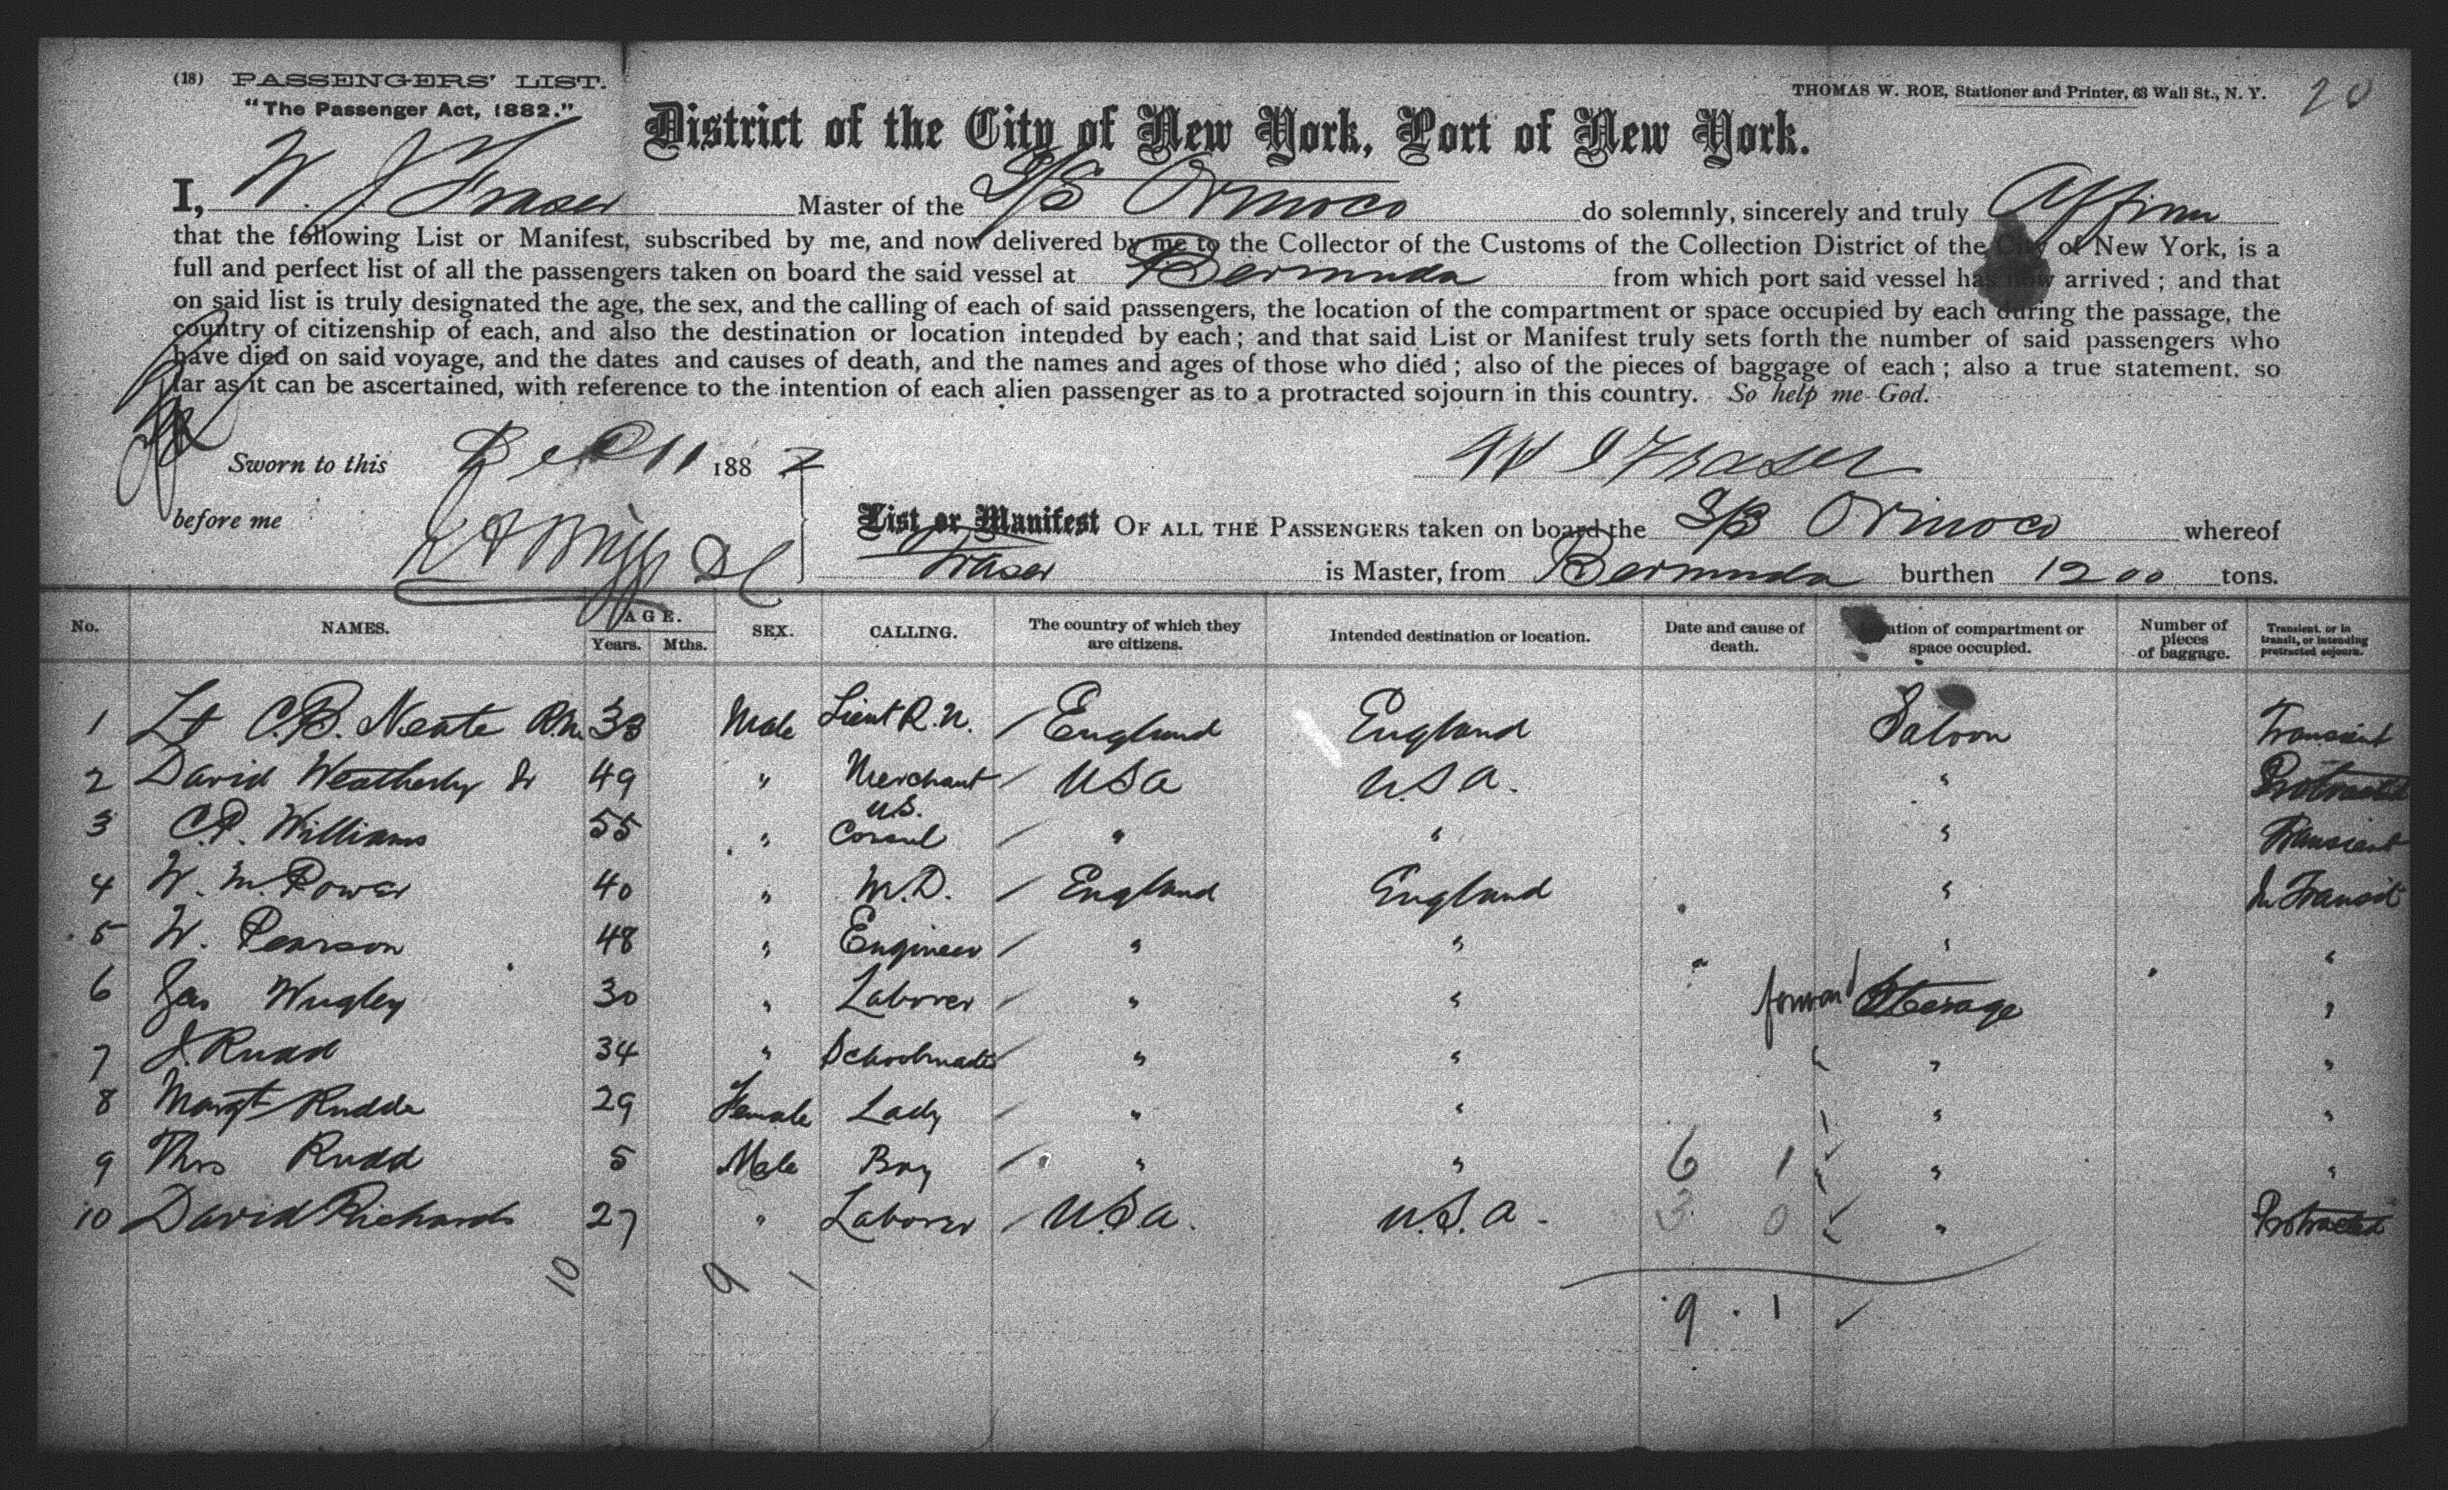 (18) PASSENGERS' LIST.
"The Passenger Act, 1882."
THOMAS W. ROE, Stationer and Printer, 63 Wall St., N. Y.
20
District of the City of New York, Port of New York.
I, W. J. Fraser Master of the S/S Orinoco do solemnly, sincerely and truly Affirm
that the following List or Manifest, subscribed by me, and now delivered by me to the Collector of the Customs of the Collection District of the City of New York, is a
full and perfect list of all the passengers taken on board the said vessel at Bermuda from which port said vessel has now arrived; and that
on said list is truly designated the age, the sex, and the calling of each of said passengers, the location of the compartment or space occupied by each during the passage, the
country of citizenship of each, and also the destination or location intended by each; and that said List or Manifest truly sets forth the number of said passengers who
have died on said voyage, and the dates and causes of death, and the names and ages of those who died; also of the pieces of baggage of each; also a true statement, so
far as it can be ascertained, with reference to the intention of each alien passenger as to a protracted sojourn in this country. So help me God.
Sworn to this Dec 11 1882 W J Fraser
before me
List or Manifest OF ALL THE PASSENGERS taken on board the S/S Orinoco whereof
Fraser is Master, from Bermuda burthen 1200 tons.
No. NAMES. AGE. Years. Mths. SEX. CALLING. The country of which they are citizens. Intended destination or location. Date and cause of death. Location of compartment or space occupied. Number of pieces of baggage. Transient, or in transit, or intending protracted sojourn.
1 Lt C.B. Neate R.N. 33 Male Lieut R.N. / England England Saloon Transient
2 David Weatherby Jr 49 " Merchant / USA U.S.A. " Protracted
3 C.P. Williams 55 " U.S. Consul / " " " Transient
4 W. M. Power 40 " M.D. / England England " In Transit
5 W. Pearson 48 " Engineer / " " " "
6 Jas Wrigley 30 " Laborer / " " forward Steerage "
7 J. Rudd 34 " Schoolmaster / " " " "
8 Margt Rudde 29 Female Lady / " " " "
9 Thos Rudd 5 Male Boy / " " 6 1 " "
10 David Richards 27 " Laborer / U.S.A. U.S.A. 3 0 " Protracted
10 9 1
9 . 1